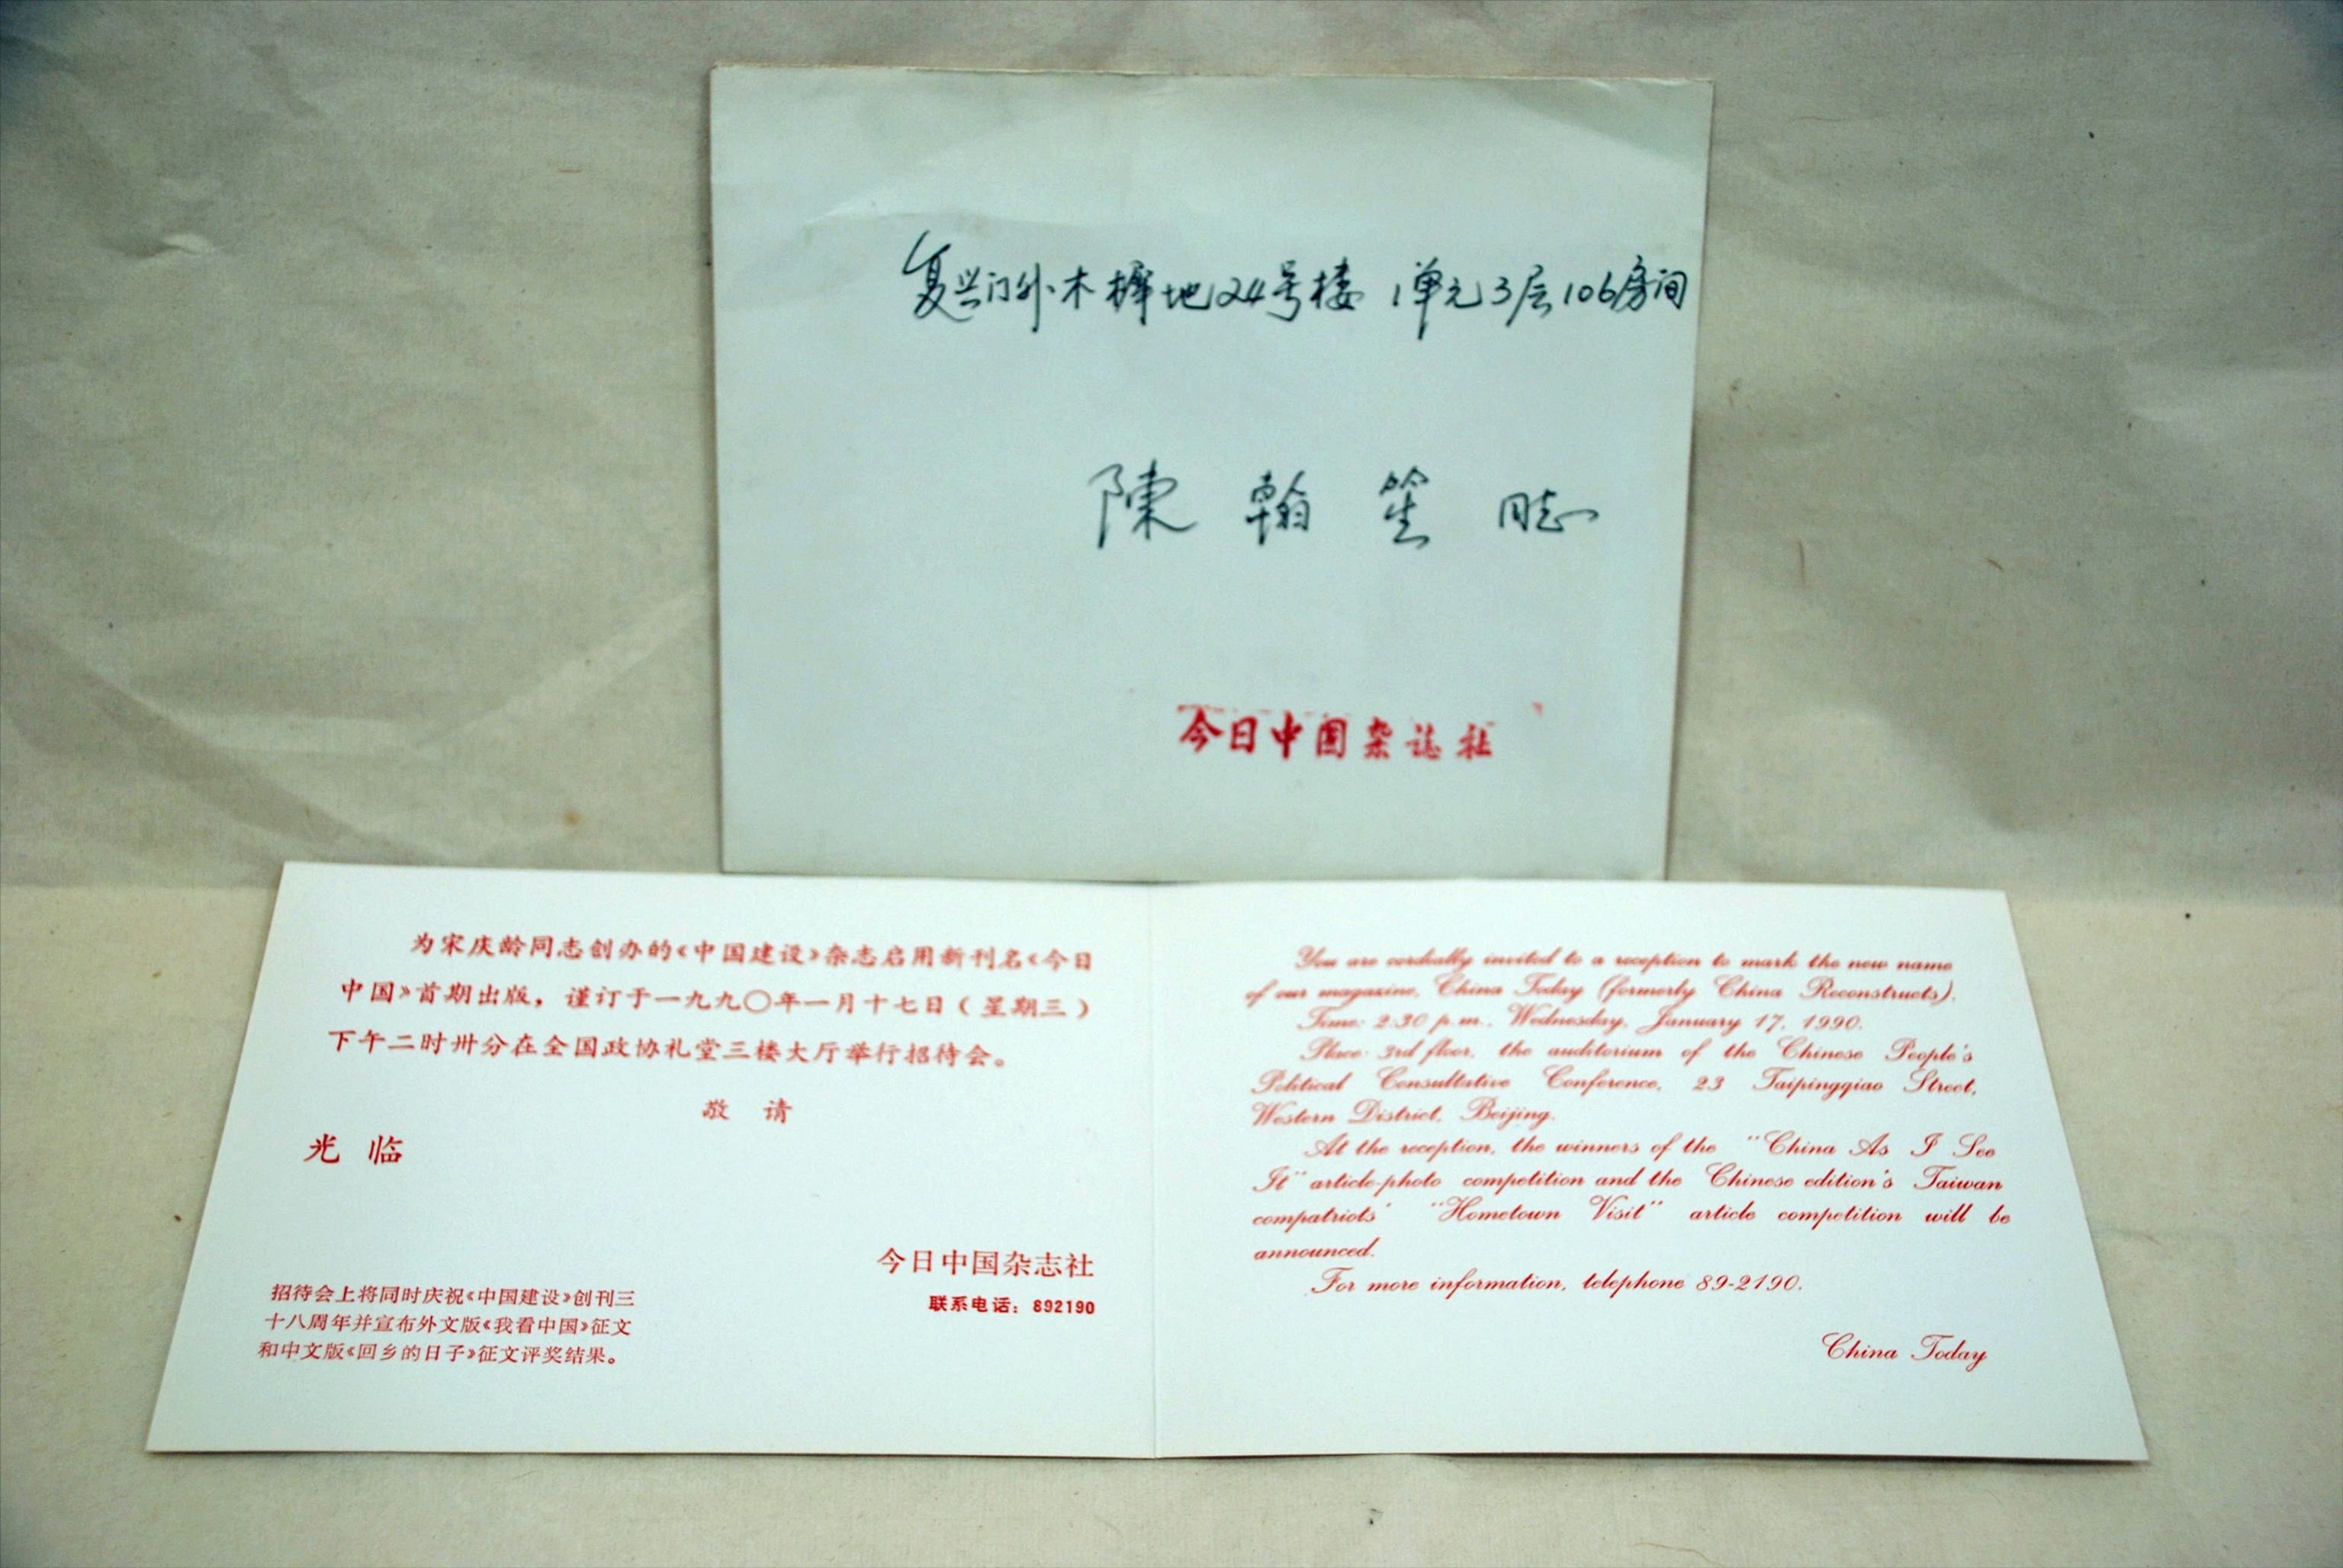 复兴门外木樨地24号楼 1单元3层106房间
陳翰笙同志
今日中国杂志社
为宋庆龄同志创办的《中国建设》杂志启用新刊名《今日
中国》首期出版，谨订于一九九〇年一月十七日（星期三）
下午二时卅分在全国政协礼堂三楼大厅举行招待会。
敬 请
光 临
今日中国杂志社
联系电话：892190
招待会上将同时庆祝《中国建设》创刊三
十八周年并宣布外文版《我看中国》征文
和中文版《回乡的日子》征文评奖结果。
You are cordially invited to a reception to mark the new name
of our magazine, China Today (formerly China Reconstructs).
Time: 2:30 p.m., Wednesday, January 17, 1990.
Place: 3rd floor, the auditorium of the Chinese People's
Political Consultative Conference, 23 Taipingqiao Street,
Western District, Beijing.
At the reception, the winners of the "China As I See
It" article-photo competition and the Chinese edition's Taiwan
compatriots' "Hometown Visit" article competition will be
announced.
For more information, telephone 89-2190.
China Today